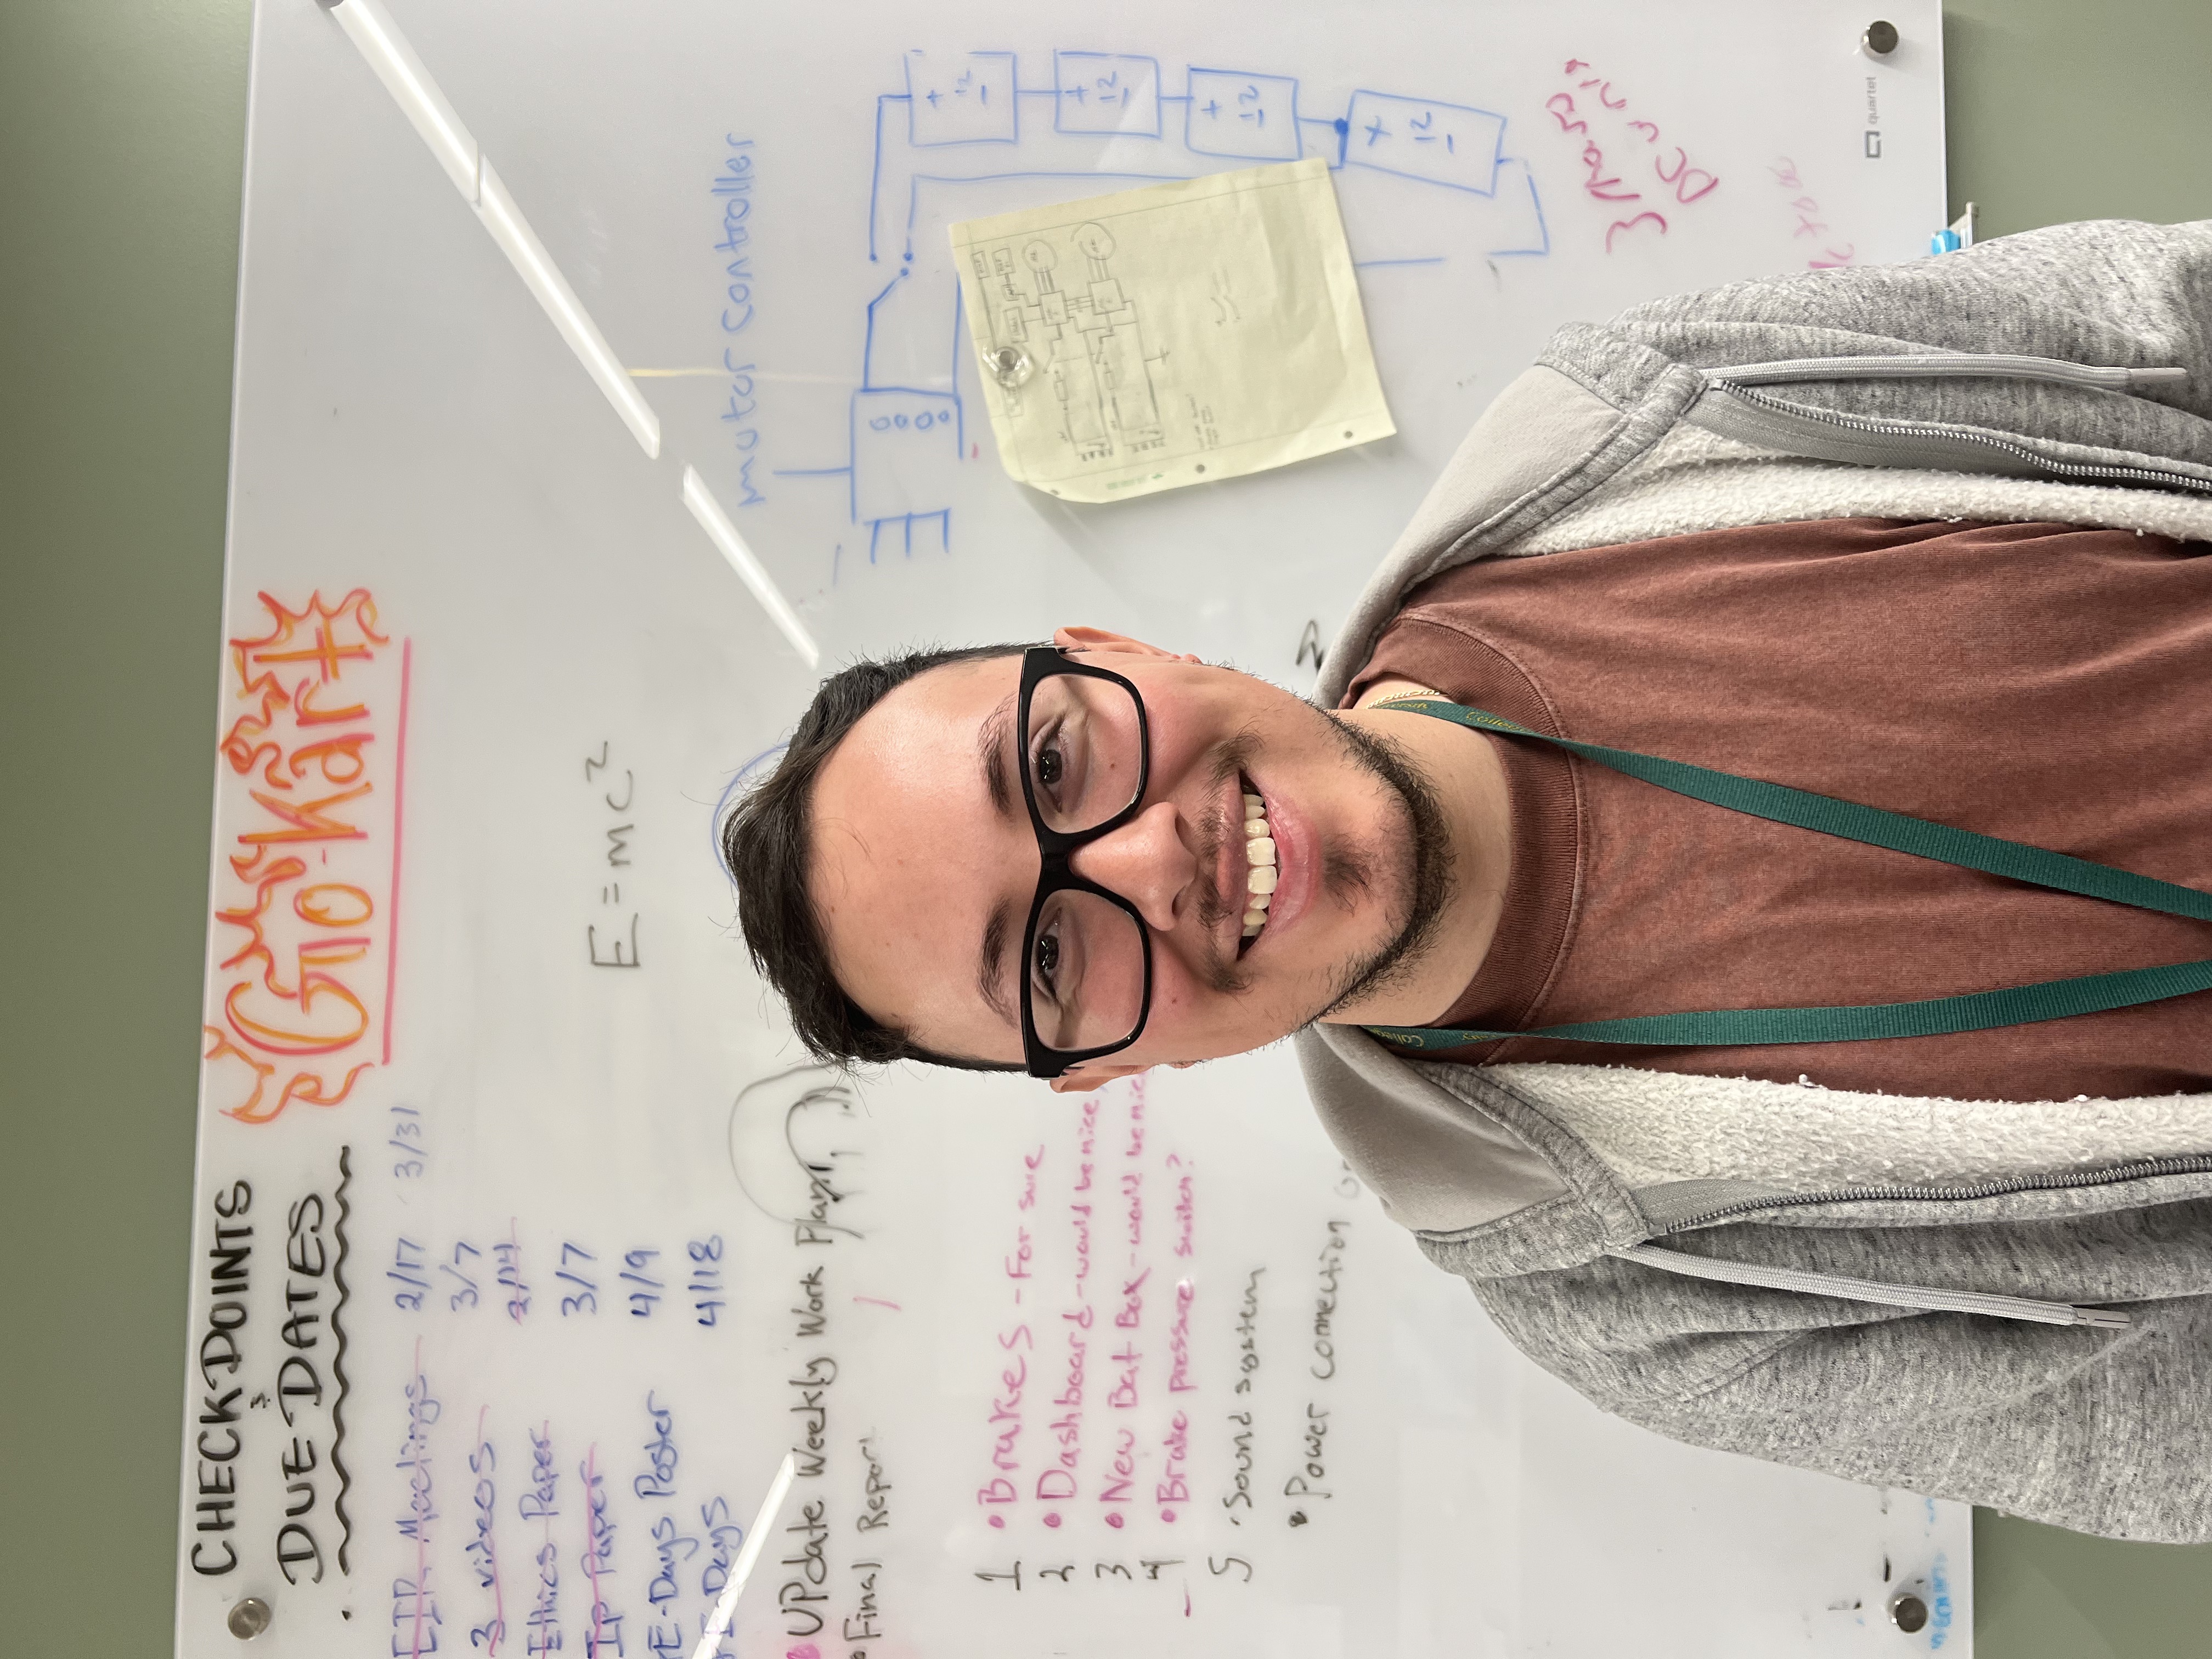 CHECKPOINTS
&
DUE DATES
Go-Kart
EIR Meetings 2/17 3/31
3 videos 3/7
Ethics Paper 2/14
Ip Paper 3/7
E-Days Poster 4/9
E-Days 4/18
E = mc²
• UPdate Weekly Work Plan
• Final Report
1 • Brakes - For sure
2 • Dashboard - would be nice
3 • New Bat Box - would be nice
4 • Brake pressure switch?
5 • Sound system
• Power connection
motor controller
+
12
-
+
12
-
+
12
-
+
12
-
3
DC
quartet